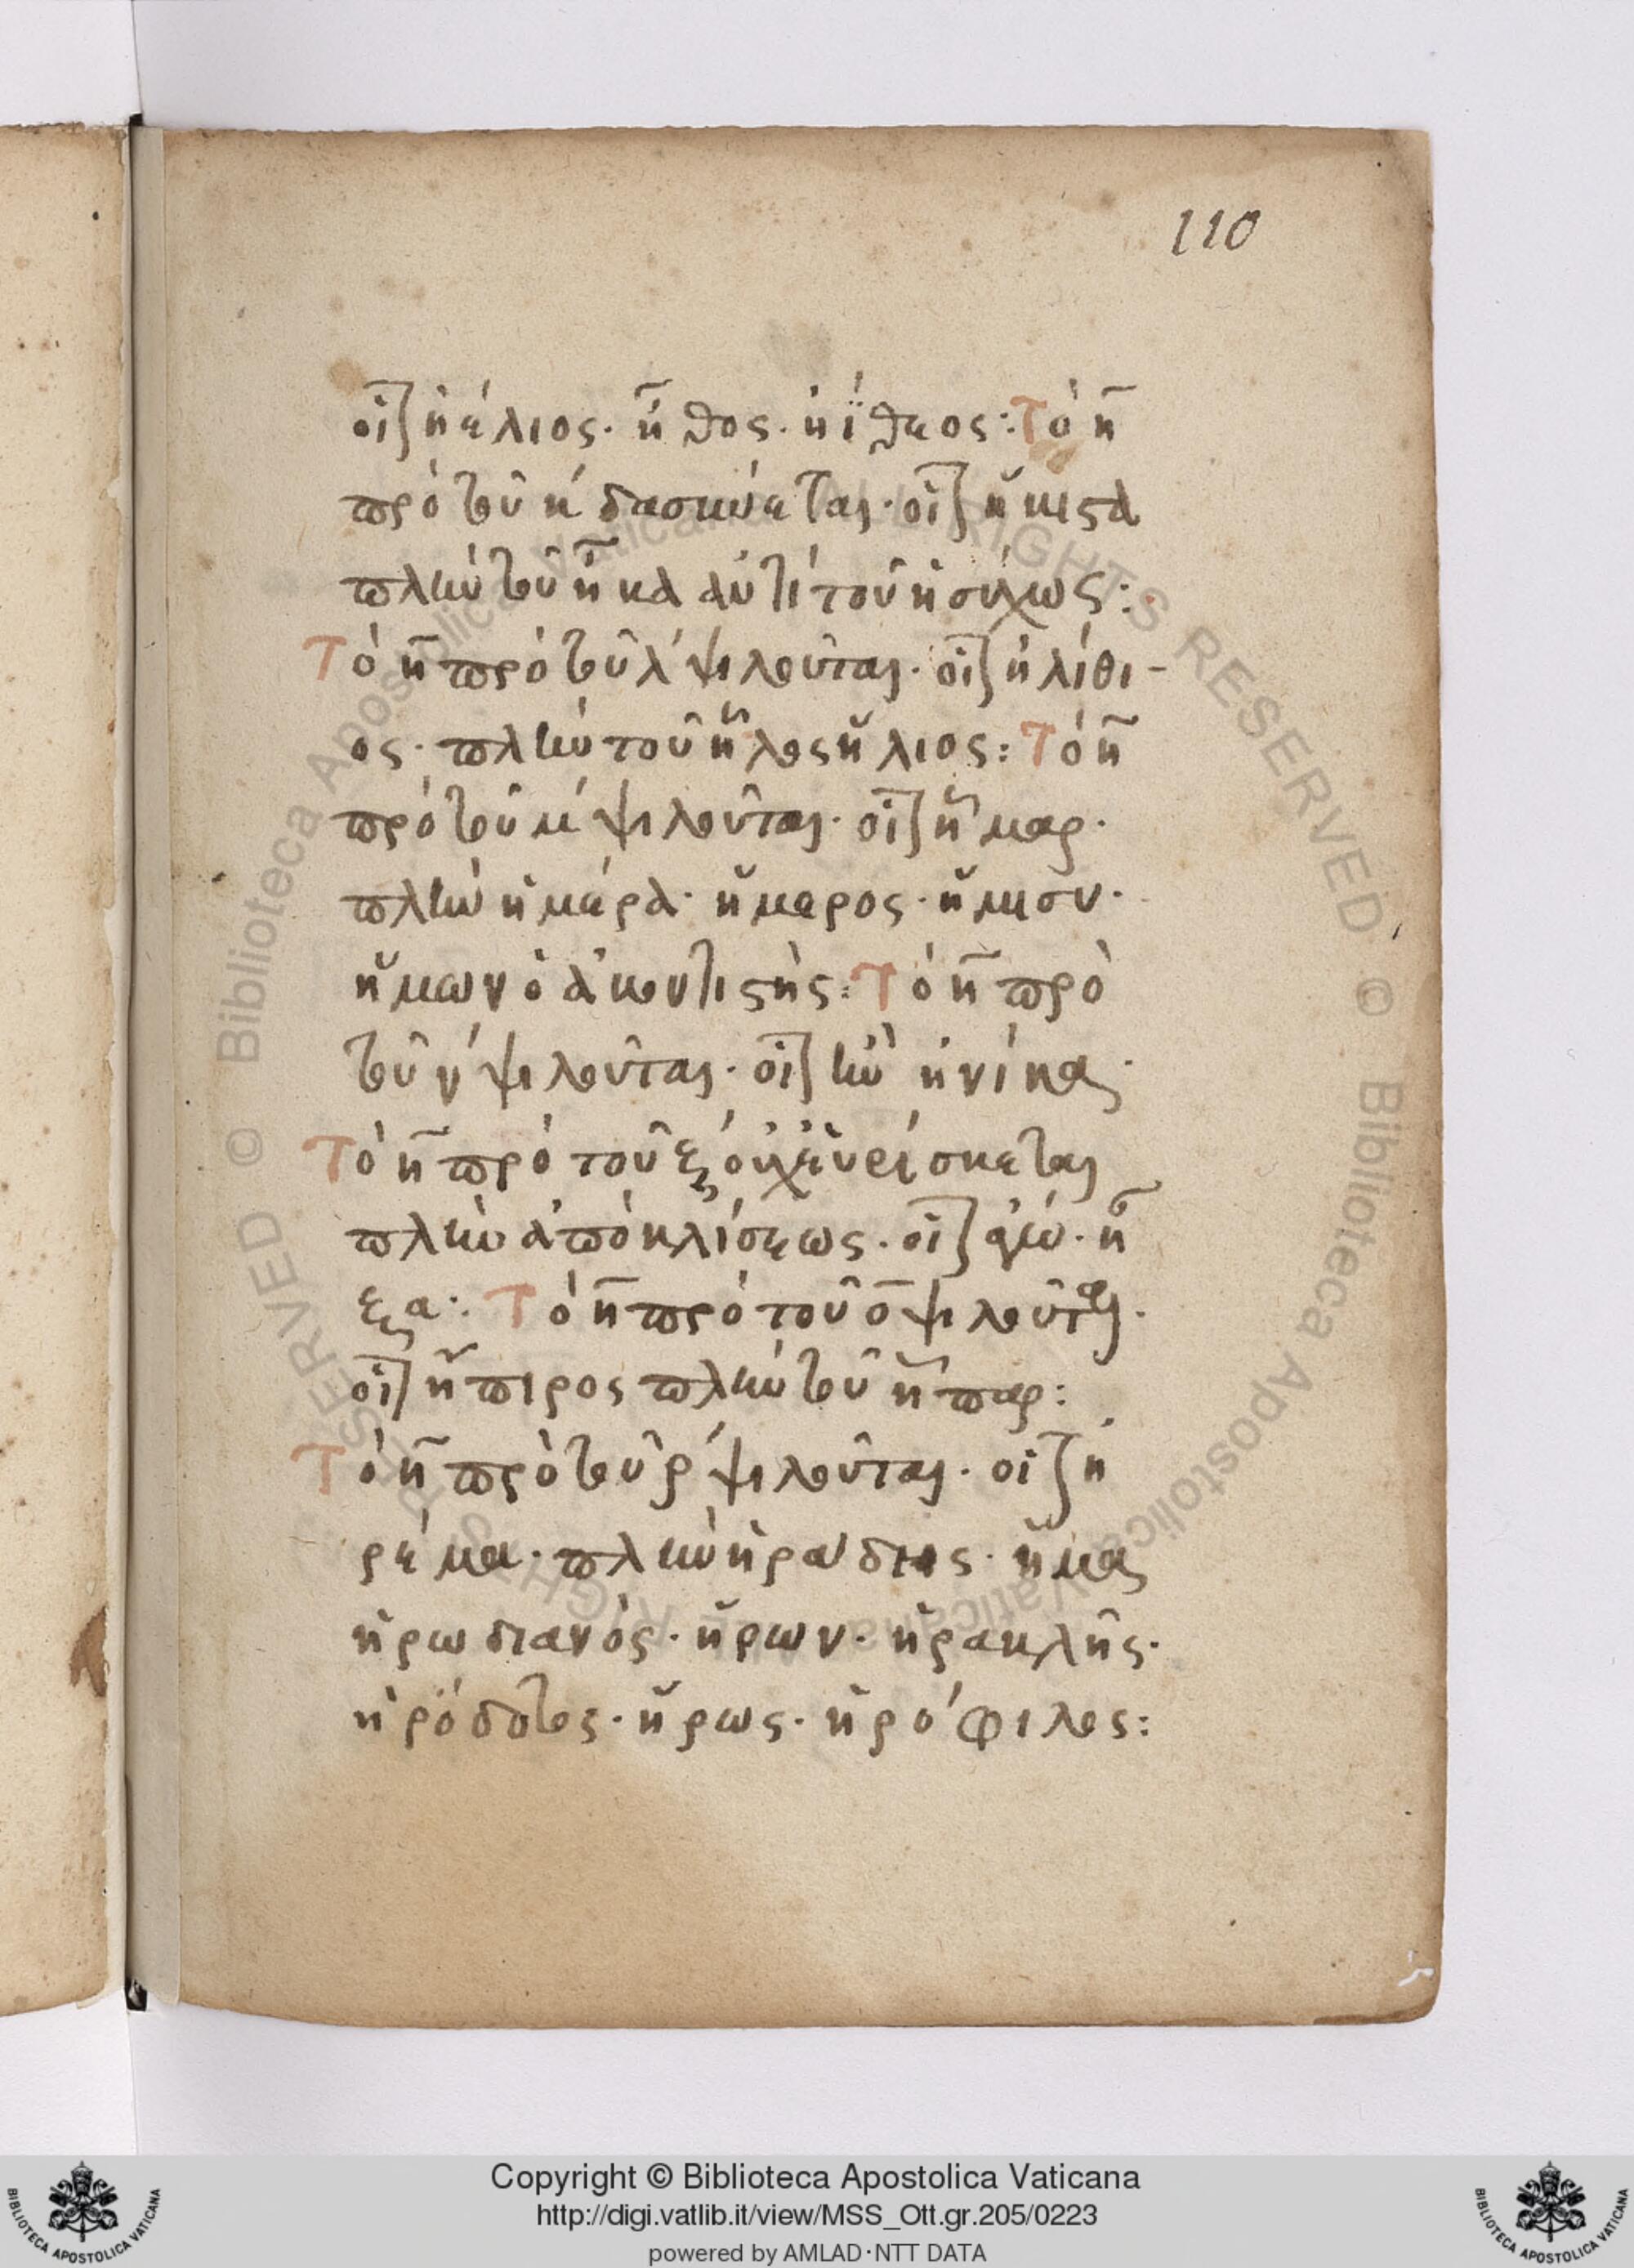 110
οἷον ἠέλιος· ἦθος· ἠΐθεος: Τὸ η
πρὸ τοῦ κ δασύνεται· οἷον ἥκιστα
πλὴν τοῦ ἦκα ἀντὶ τοῦ ἡσύχως:
Τὸ η πρὸ τοῦ λ ψιλοῦται· οἷον ἠλίθι-
ος· πλὴν τοῦ ἧλος ἥλιος: Τὸ η
πρὸ τοῦ μ ψιλοῦται· οἷον ἦμαρ·
πλὴν ἡμέρα· ἥμερος· ἥμισυ·
ἥμων ὁ ἀκοντιστὴς: Τὸ η πρὸ
τοῦ ν ψιλοῦται· οἷον ἠνίκα
Τὸ η πρὸ τοῦ ξ οὐχ εὑρίσκεται
πλὴν ἀπὸ κλίσεως· οἷον
ξα: Τὸ η πρὸ τοῦ ο ψιλοῦται·
οἷον ἤπιρος πλὴν τοῦ ἧπαρ:
Τὸ η πρὸ τοῦ ρ ψιλοῦται· οἷον ἠ
ρέμα· πλὴν
ἡρωδιανός· ἥρων· ἡρακλῆς·
ἡρόδοτος· ἥρως· ἡρόφιλος:
© Biblioteca Apostolica Vaticana ALL RIGHTS RESERVED © Biblioteca Apostolica Vaticana ALL RIGHTS RESERVED
Copyright © Biblioteca Apostolica Vaticana
http://digi.vatlib.it/view/MSS_Ott.gr.205/0223
powered by AMLAD·NTT DATA
BIBLIOTECA APOSTOLICA VATICANA
BIBLIOTECA APOSTOLICA VATICANA